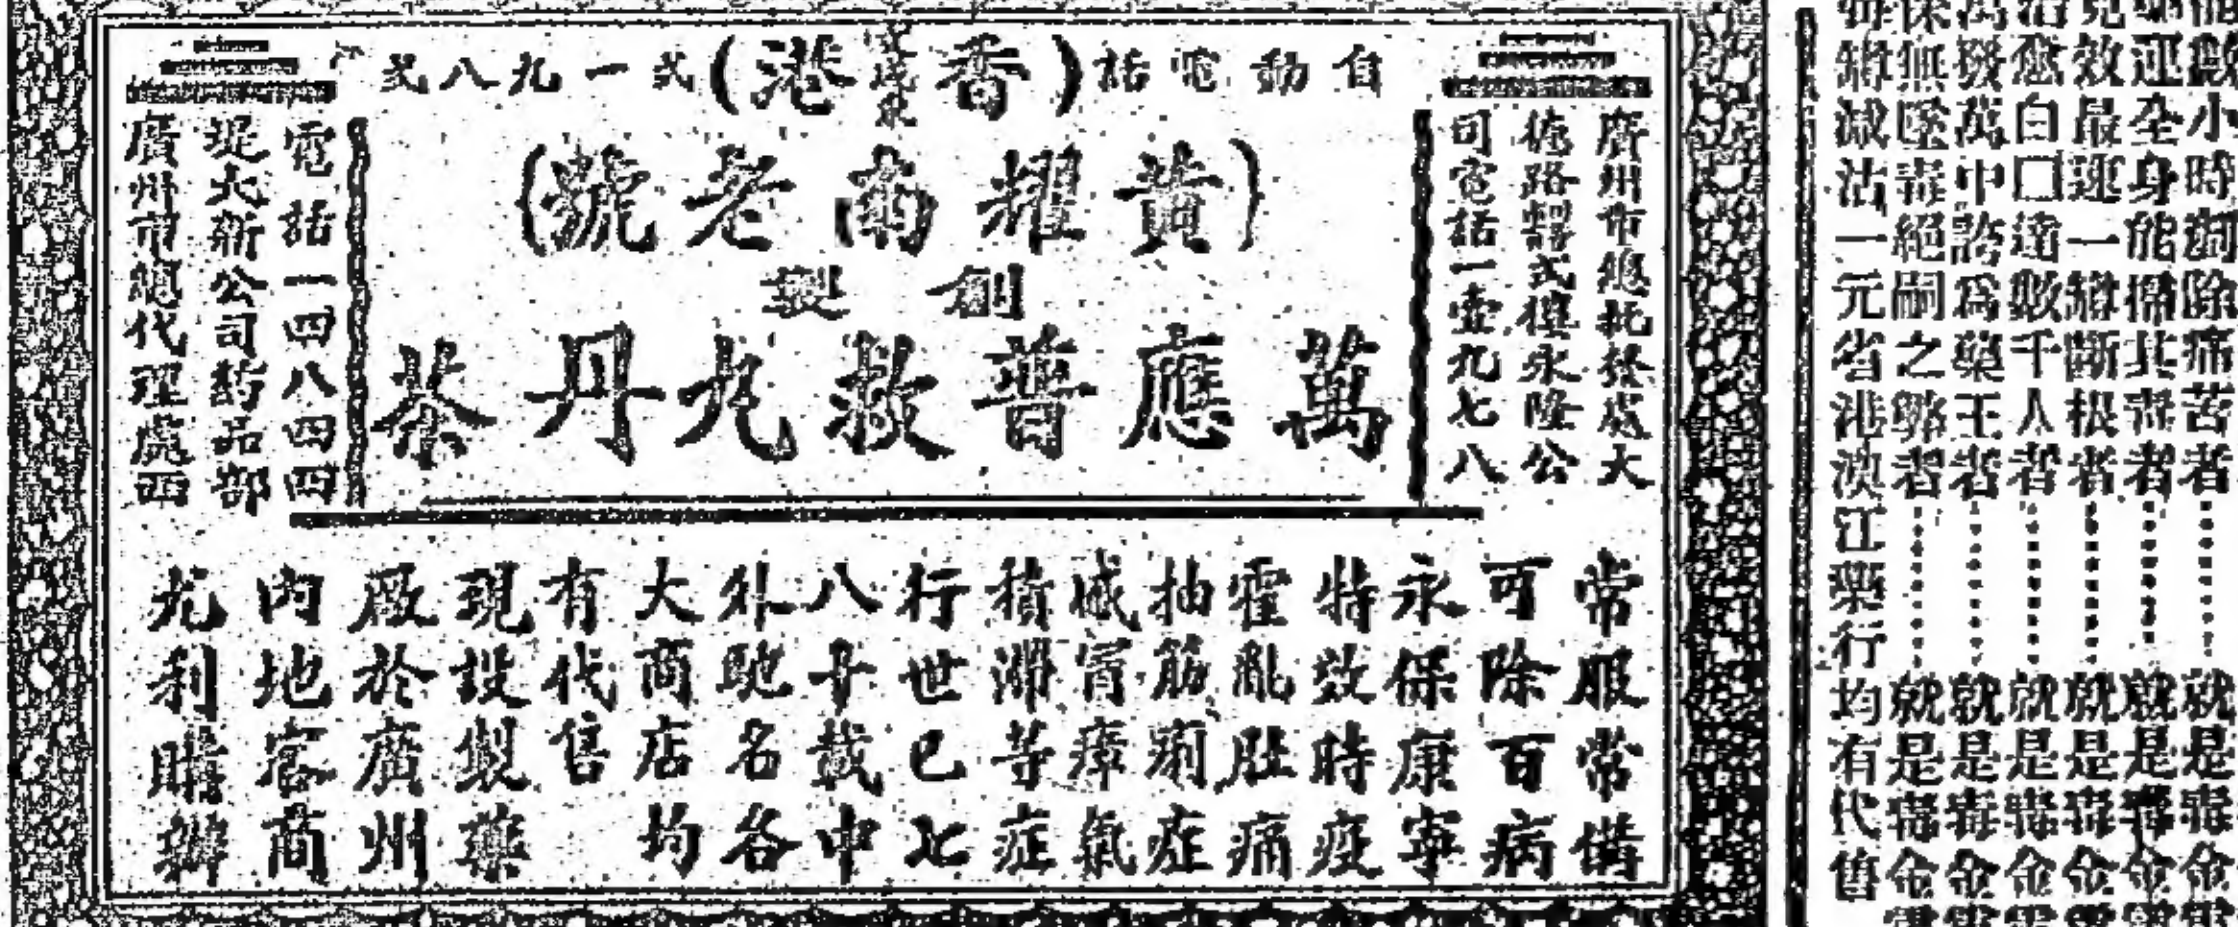 自動電話(香港)式一九八式
(黃耀南老號)
創製
萬應普救丸丹茶
廣州市總批發處大
德路 式樓永隆公
司電話一壹九七八
電話一四八四四
堤大新公司葯品部
廣州市總代理處西
常服常備
可除百病
永保康寧
特效時疫
霍亂肚痛
抽筋痢症
感冒瘴氣
積滯等症
行世已七
八十載中
外馳名各
大商店均
有代售
現設製藥
廠於廣州
內地客商
尤利購辦
小時 除痛苦者……就是毒
運全身能 其毒者……就是毒
效最速一 斷根者……就是毒
愈白囗達數千人者……就是毒
發萬中誇為藥王者……就是毒
無墜毒絕嗣之弊者……就是毒
減沽一元省港澳江藥行均有代售